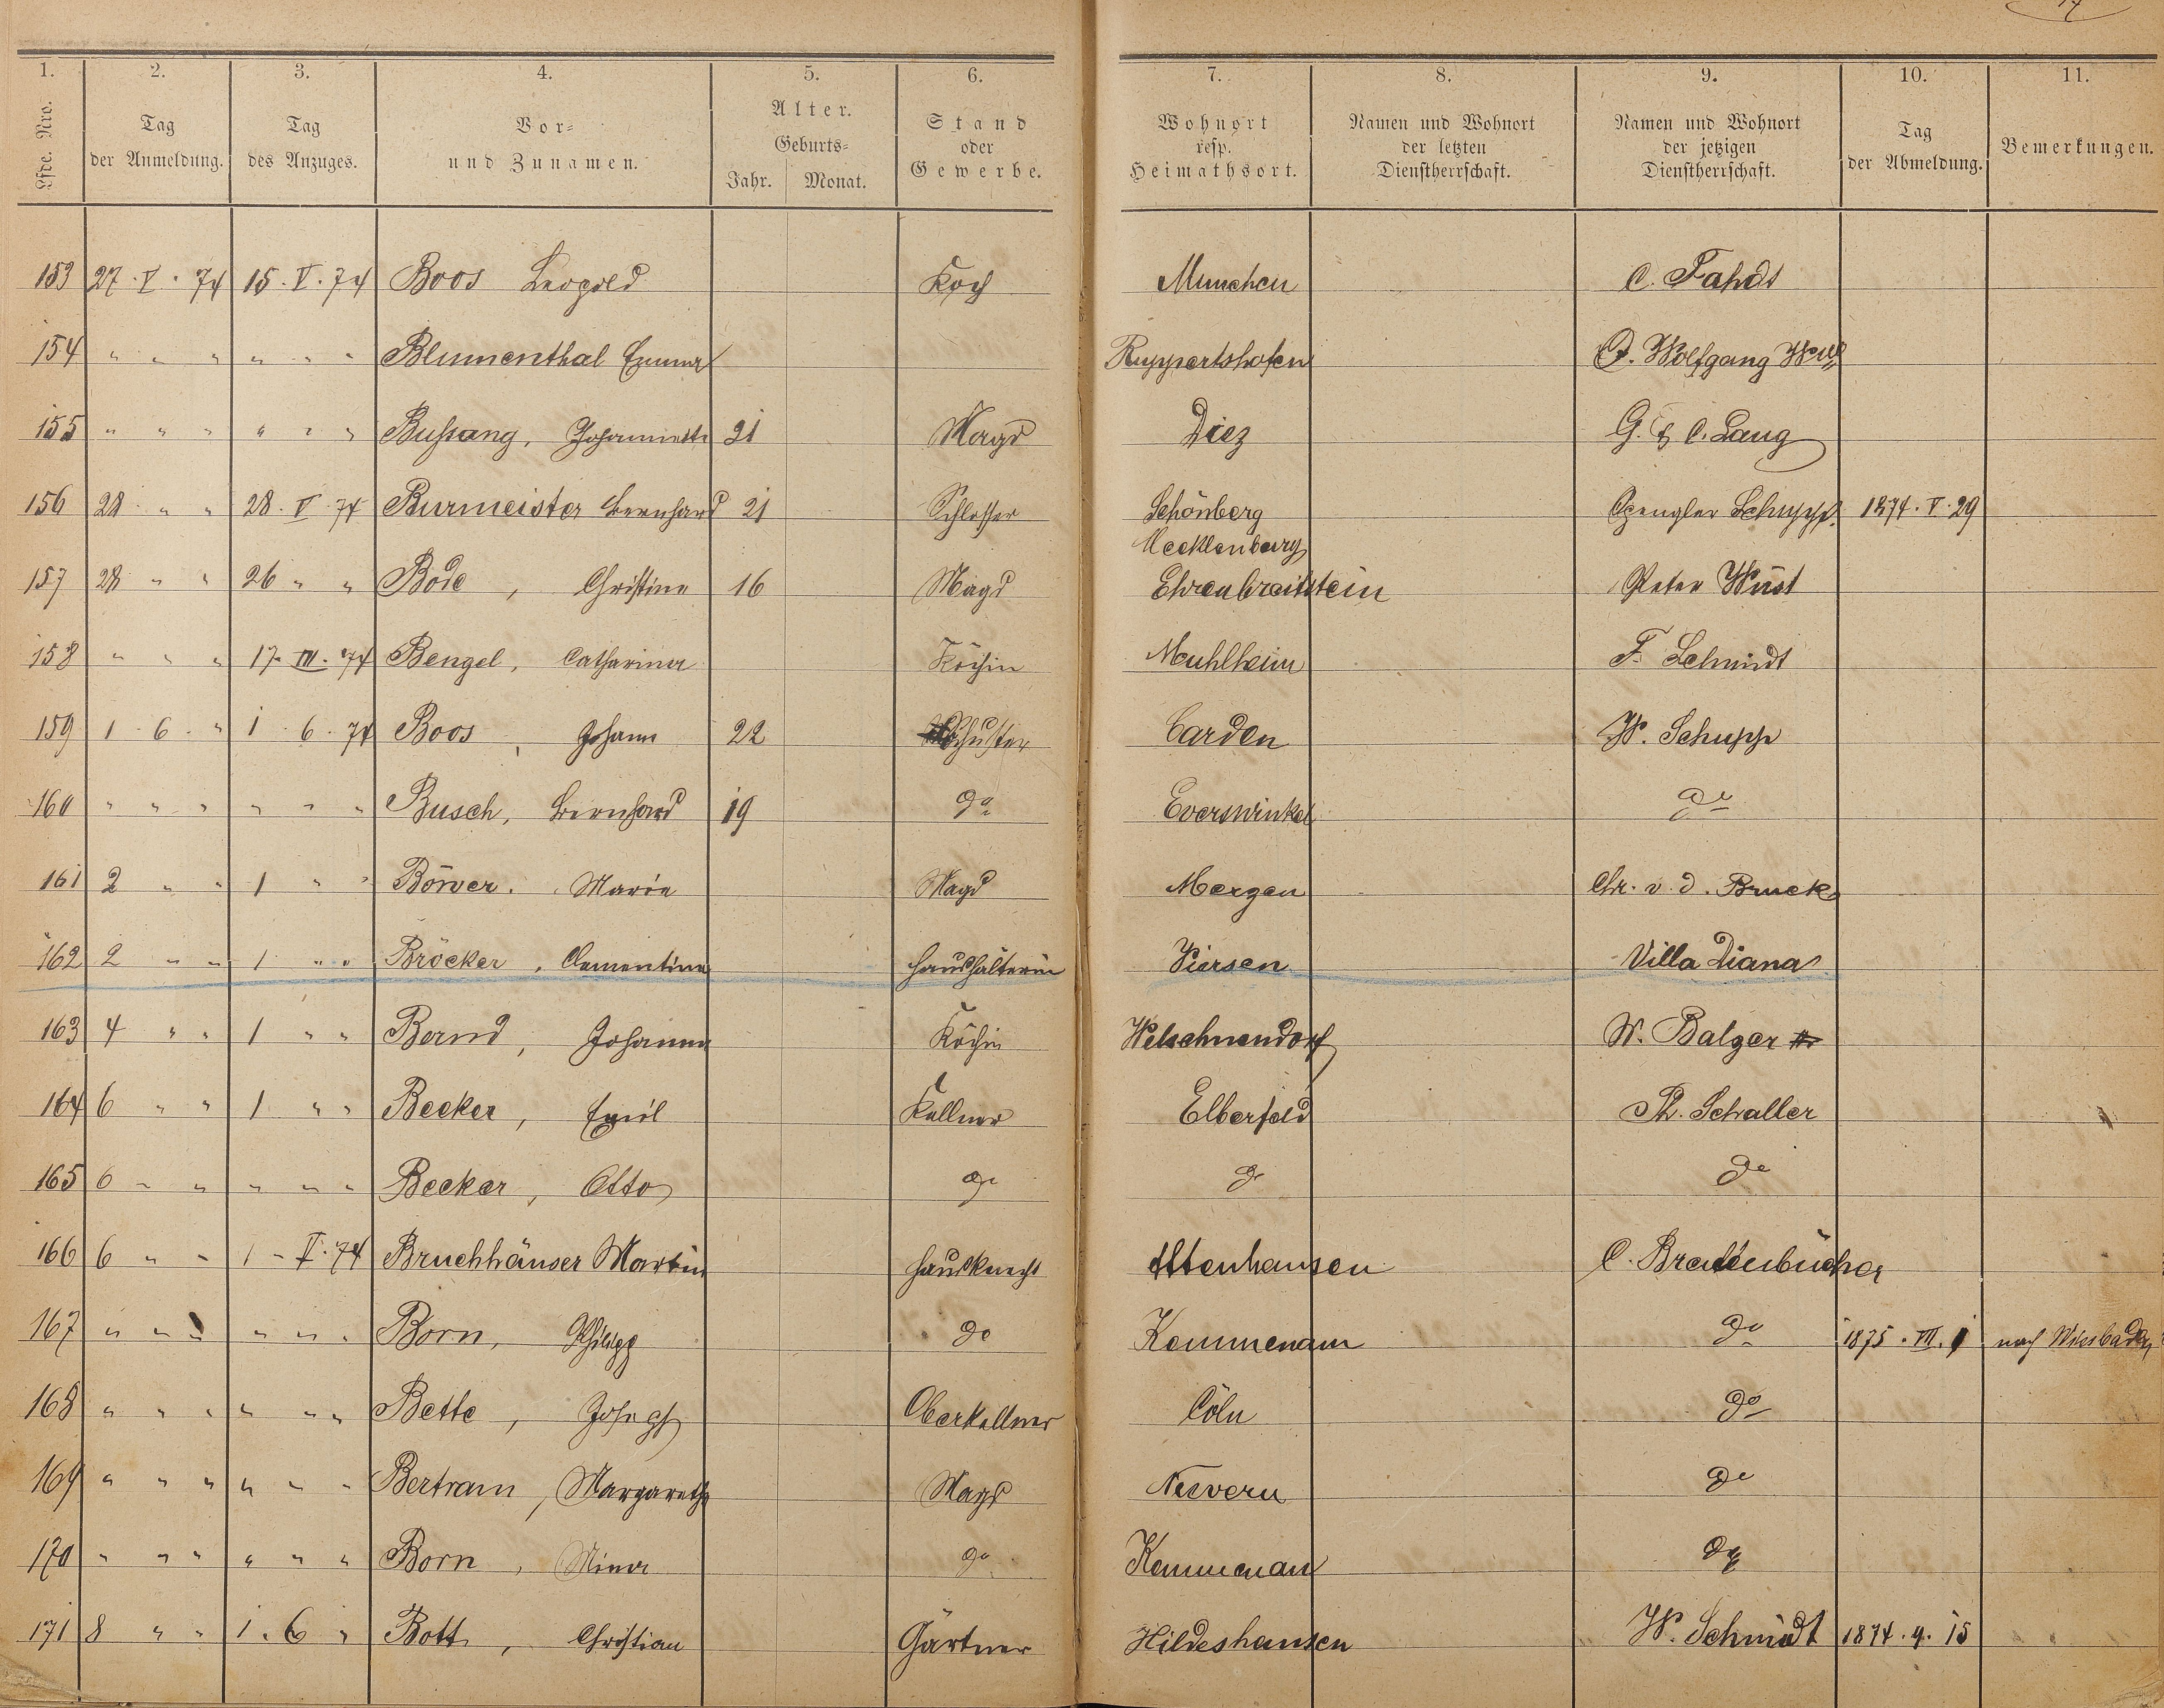 1. 2. 3. 4. 5. 6. 7. 8. 9. 10. 11.
Lfde. Nro. Tag der Anmeldung. Tag des Anzuges. Vor- und Zunamen. Alter. Geburts- Jahr. Monat. Stand oder Gewerbe. Wohnort resp. Heimathsort. Namen und Wohnort der letzten Dienstherrschaft. Namen und Wohnort der jetzigen Dienstherrschaft. Tag der Abmeldung. Bemerkungen.
153 27. V. 74 15. V. 74 Boos Leopold Koch Munchen C. Fahdt
154 " " " " " " Blumenthal Emma Ruppertshofen Wolfgang
155 " " " " " " Bußang, Johannette 21 Magd Diez G. & C. Lang
156 28 " " 28. V 74 Burmeister Bernhard 21 Schlosser Schönberg Spengler Schupp 1874. V. 29
Mecklenburg
157 28 " " 26 " " Bode, Christine 16 Magd Ehrenbreitstein Peter Wüst
158 " " " 17. III. 74 Bengel, Catharina Köchin Muhlheim F. Schmidt
159 1. 6. " 1. 6. 74 Boos, Johann 22 Schuster Carden W. Schupp
160 " " " " " " Busch, Bernhard 19 do Everswinkel do
161 2 " " 1 " " Marie Magd Mergen Chr. v. d. Bruck
162 2 " " 1 " " Bröcker, Clementine Haushälterin Viersen Villa Diana
163 4 " " 1 " " Bernd, Johanna Köchin Welschnendorf W. Balzer
164 6 " " 1 " " Becker, Emil Kellner Elberfeld Ph. Schaller
165 6 " " " " " Becker, Otto do do do
166 6 " " 1 " V. 74 Bruchhäuser Martin Hausknecht Attenhausen C. Braeunbücher
167 " " " " " " Born, Philipp do Kemmenau do 1875. VII. 1 nach Wiesbaden
168 " " " " " " Bette, Joseph Oberkellner Cöln do
169 " " " " " " Bertram, Margaretha Magd Nievern do
170 " " " " " " Born, Mina do Kemmenau do
171 8 " " 1. 6 " Bott, Christian Gärtner Hildeshausen W. Schmidt 1874. 9. 15